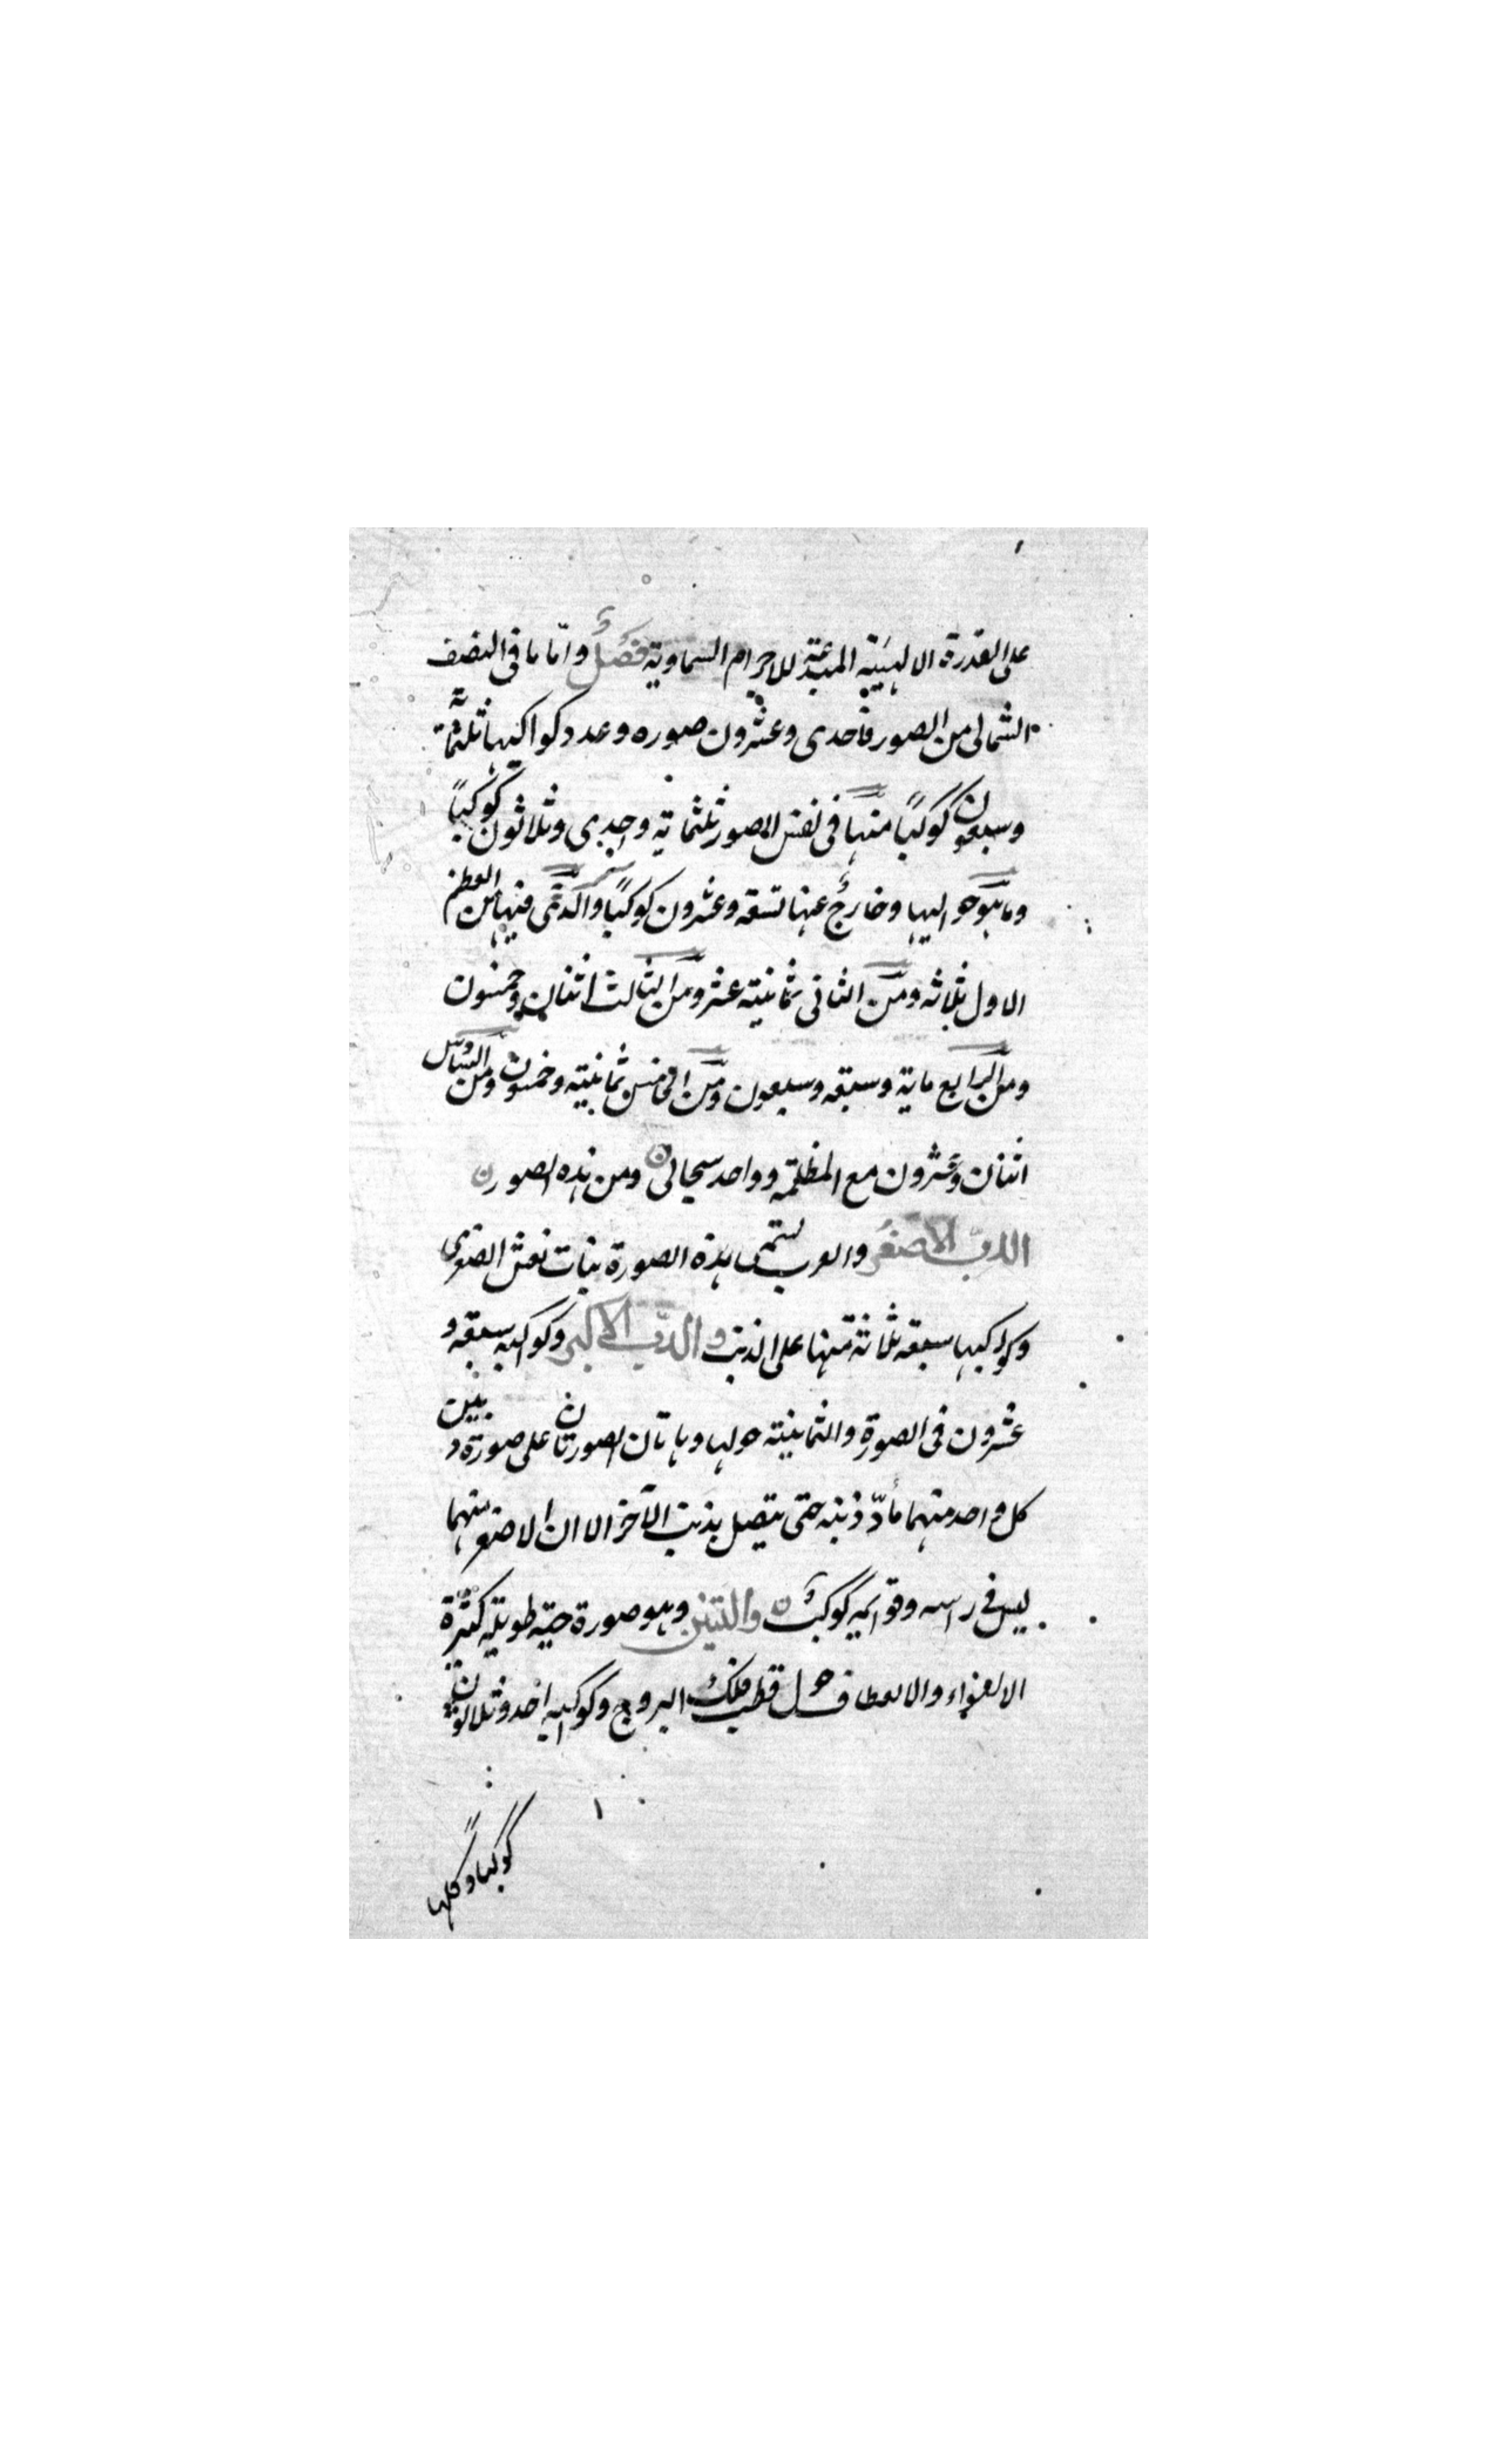 على القدرة الالهيّة المبدعة للاجرام السماوية فصل واما ما فى النصف
الشمالى من الصور فاحدى وعشرون صوره وعدد كواكبها ثلثمائة
وسبعون كوكبًا منها فى نفس الصور ثلثماية واحدى وثلاثون كوكبًا
وما هو حواليها وخارج عنها تسعة وعشرون كوكبًا والذى فيها من العظم
الاول ثلاثه ومن الثانى ثمانيته عشر ومن الثالث اثنان وخمسون
ومن الرابع ماية وسبعه وسبعون ومن الخامس ثمانيته وخمسون ومن السادس
اثنان وعشرون مع المظلمة وواحد سحابى ومن هذه الصور
الدبّ الاصغر والعرب يسمّى هذه الصورة بنات نعش الصغرى
وكواكبها سبعه ثلاثة منها على الذنب والدبّ الاكبر وكواكبه سبعه و
عشرون فى الصورة والثمانيته حولها وهاتان الصورتان على صورة دبين
كل واحد منهما مادّ ذنبه حتى يتصل بذنب الآخر الا ان الاصغر منهما
ليس فى راسه وقوائمه كوكب والتنين وهو صورة حيّة طويلة كثيرة
الالتواء والانعطاف حول قطب فلك البروج وكوكبه احد وثلاثون
كوكبا وكلها